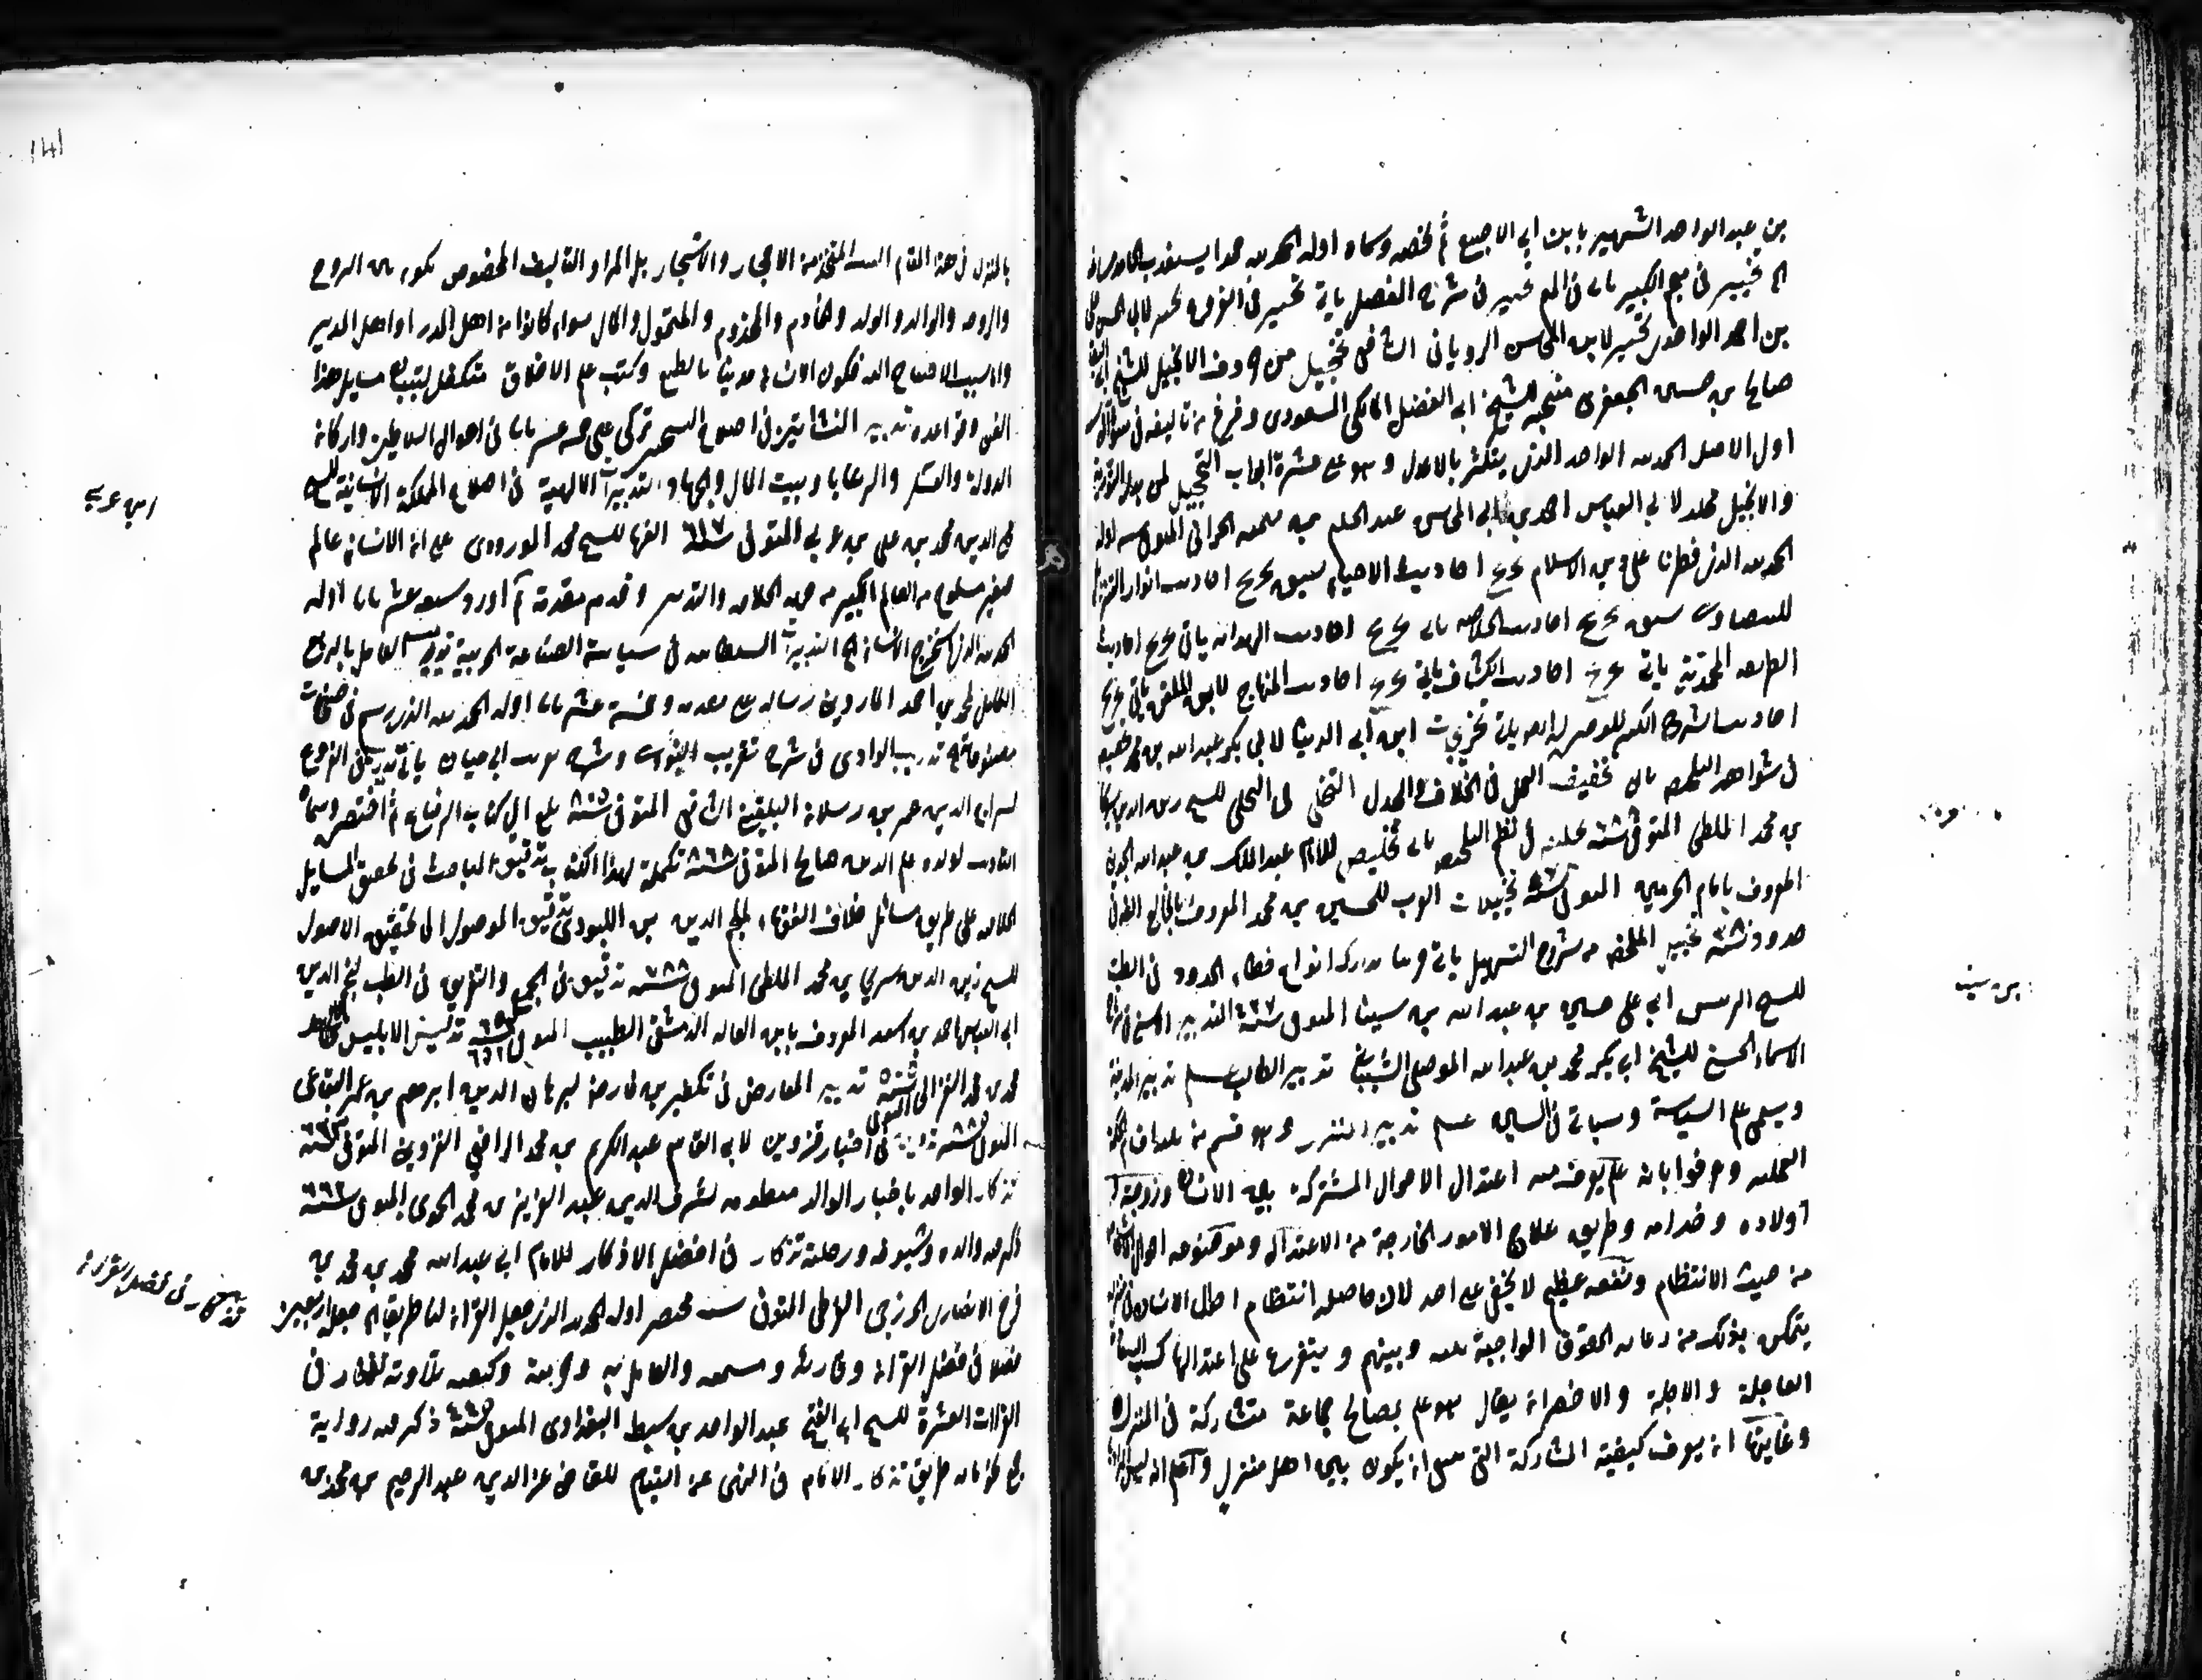 بن عبد الواحد الشهير بابن ابي الاصبع ثم لخصه وسماه اوله الحمد لله حمدا يستعذب
تحبير في شرح المفصل ياتي تحبير في الفروع لابي الحسن علي
بن احمد الواحدي تحبير لابي المحاسن الروياني الشافعي تخجيل من حرف الانجيل للشيخ ابي البقا
صالح بن حسين الجعفري منتخبه للشيخ ابي الفضل المالكي المسعودي وفرغ من تاليفه في شوال
اول الاصل الحمد لله الواحد الذي يتكثر بالاعداد وهو على عشرة ابواب التخجيل لمن بدل التورية
والانجيل مجلد لابي العباس احمد بن ابي المحاسن عبد الحليم بن تيمية الحراني المتوفى سنة اوله
الحمد لله الذي فطرنا على دين الاسلام تخريج احاديث الاحياء سبق تخريج احاديث انوار التنزيل
للبيضاوي سبق تخريج احاديث الخلاصة ياتي تخريج احاديث الهداية ياتي تخريج احاديث
الطريقة المحمدية ياتي تخريج احاديث الكشاف ياتي تخريج احاديث المنهاج لابن الملقن ياتي تخريج
احاديث الشرح الكبير تخريجات ابن ابي الدنيا لابي بكر عبد الله بن محمد
في شواهد التلخيص ياتي تخفيف العمل في الخلاف والجدل التخلي في التحلي للشيخ زين الدين سريجا
بن محمد الملطي المتوفى ٧٨٨ في نظم التلخيص ياتي تخليص للامام عبد الملك بن عبد الله الجويني
المعروف بامام الحرمين المتوفى ٤٧٨ تخيلات العرب للحسين بن محمد المعروف بالخالع
حدود ٣٨٠ تخيير الملخص من شروح التسهيل ياتي تدارك انواع خطاء الحدود في الطب
للشيخ الرئيس ابي علي حسين بن عبد الله بن سينا المتوفى ٤٢٧ التدبير الاسنى في شرح
الاسماء الحسنى للشيخ ابي بكر محمد بن عبد الله الموصلي الشيباني تدبير الطالب علم تدبير المدينة
ويسمى علم السياسة وسياتي في السين علم تدبير المنزل وهو قسم من ثلثة اقسام الحكمة
العملية وعرفوا بانه علم يعرف منه اعتدال الاحوال المشتركة بين الانسان وزوجته
اولاده وخدامه وطريق علاج الامور الخارجة من الاعتدال وموضوعه احوال الاشخاص
من حيث الانتظام ونفعه عظيم لا يخفى على احد لان حاصله انتظام احوال الانسان في منزله
يتمكن بذلك من رعاية الحقوق الواجبة بينه وبينهم ويتفرع على اعتدالها كسب السعادة
العاجلة والاجلة والاخصر ان يقال هو علم بمصالح جماعة متشاركة في المنزل
وغايتها ان يعرف كيفية المشاركة التي ينبغي ان يكون بين اهل منزل واعلم انه ليس المراد
بن سينا
بالمنزل في هذا المقام البيت المتخذ من الاحجار والاشجار بل المراد التاليف المخصوص يكون بين الزوج
والزوجة والوالد والولد والخادم والمخدوم والمتمول والمال سواء كانوا من اهل المدر او اهل الوبر
واما سبب الاحتياج اليه فكون الانسان مدنيا بالطبع وكتب علم الاخلاق متكفل ببيان مسايل هذا
الفن وقواعده تدبير النشاتين في اصلاح تركي على خمسة عشر بابا في احوال السلاطين واركان
الدولة والعسكر والرعايا وبيت المال والجهاد التدبيرات الالهية في اصلاح المملكة الانسانية للشيخ
محي الدين محمد بن علي بن عربي المتوفى ٦١٧ الفها للشيخ محمد الموروري على ان الانسان عالم
صغير مسلوخ من العالم الكبير من جهة الخلافة والتدبير وقدم مقدمة ثم اورد سبعة عشر بابا اوله
الحمد لله الذي استخرج الانسان الخ التدبيرات السلطانية في سياسة الصناعة الحربية
الكامل لمحمد بن احمد المارديني رسالة على مقدمة وخمسة عشر بابا اوله الحمد لله الذي رسم في صفحات
مصنوعاته الخ تدريب الراوي في شرح تقريب النواوي وشرحه ابي حيان ياتي تدريب في الفروع
لسراج الدين عمر بن رسلان البلقيني الشافعي المتوفى ٨٠٥ بلغ الى كتاب الرضاع ثم اختصره وسماه
التاديب لولده علم الدين صالح المتوفى ٨٦٨ تكملة لهذا الكتاب تدقيق المباحث في تحقيق المسايل
الخلافية على طريق مسائل خلاف الفقهاء لنجم الدين بن اللبودي تدقيق الوصول الى تحقيق الاصول
للشيخ زين الدين سريجا بن محمد الملطي المتوفى ٧٨٨ تدقيق في الجمع والتفريق في الطب لنجم الدين
ابي العباس احمد بن اسعد المعروف بابن العالمة الدمشقي الطبيب المتوفى ٦٥٢ تدليس الابليس
محمد بن محمد الغزالي ٥٠٥ تدمير المعارض في تكفير بن فارض لبرهان الدين ابرهيم بن عمر البقاعي
المتوفى ٨٨٥ تدوين في اخبار قزوين لابي القاسم عبد الكريم بن محمد الرافعي القزويني المتوفى ٦٢٣
تذكار الواجد باخبار الوالد منظومة لشرف الدين عبد العزيز بن محمد الحموي المتوفى ٦٦٢
ذكر فيه والده وشيوخه ورحلته تذكار في افضل الاذكار للامام ابي عبد الله محمد بن محمد بن
فرح الانصاري الخزرجي القرطبي المتوفى سنة مختصر اوله الحمد لله الذي جعل القران لنا طريقا الخ جعله اربعين
فصلا في فضل القران وقارئه ومستمعه والعامل به وحرمته وكيفية تلاوته تذكار في
القراات العشرة للشيخ ابي الفتح عبد الواحد بن سبط البغدادي المتوفى ٤٤٥ ذكر فيه رواية
نحو ماية طريق تذكار الانام في النهي عن القيام للقاضي عز الدين عبد الرحيم بن محمد بن
ابن عربي